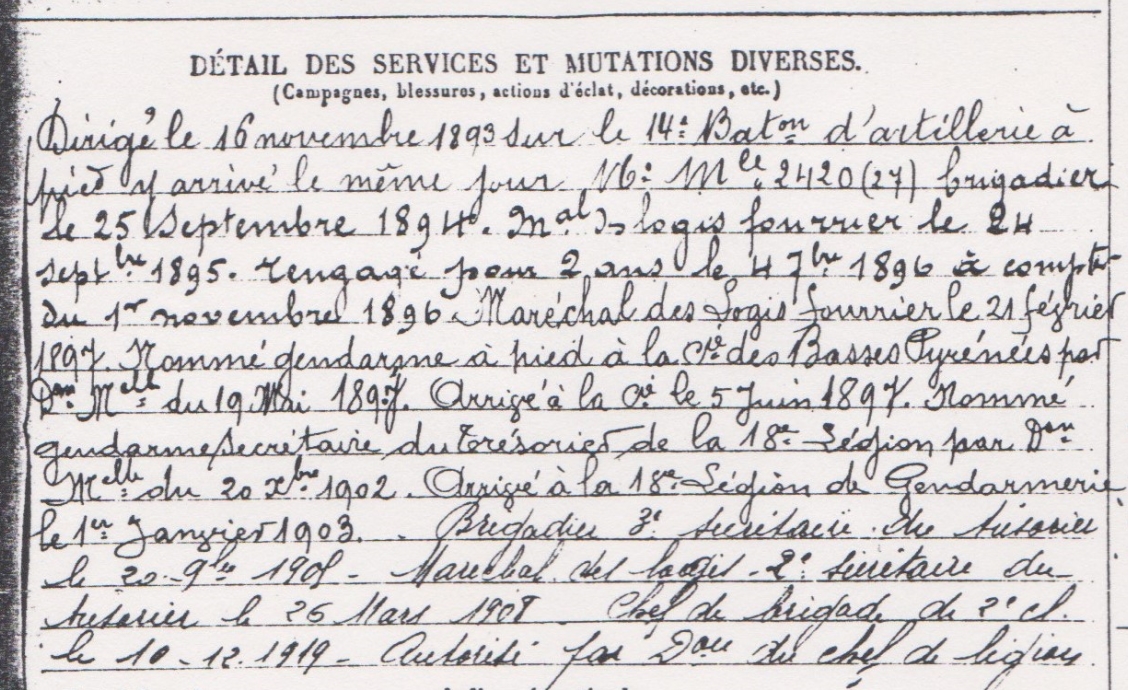 DÉTAIL DES SERVICES ET MUTATIONS DIVERSES.
(Campagnes, blessures, actions d'éclat, décorations, etc.)
Dirigé le 16 novembre 1893 sur le 14e Baton d'artillerie à
pied y arrivé le même jour No Mle 2420 (27) brigadier
le 25 Septembre 1894. Mal des logis fourrier le 24
septbre 1895. rengagé pour 2 ans le 4 7bre 1896 à compter
du 1er novembre 1896 Maréchal des Logis fourrier le 21 février
1897. Nommé gendarme à pied à la Cie des Basses Pyrénées par
Don Melle du 19 Mai 1897. Arrivé à la Cie le 5 Juin 1897. Nommé
gendarme secrétaire du Trésorier de la 18e Légion par Don
Melle du 20 Xbre 1902. Arrivé à la 18e Légion de Gendarmerie
le 1er Janvier 1903. Brigadier 3e secrétaire du trésorier
le 20 9bre 1905 - Maréchal des logis - 2e secrétaire du
trésorier le 26 Mars 1908 Chef de brigade de 2e cl.
le 10-12.1919 - Autorisé par Don du chef de légion